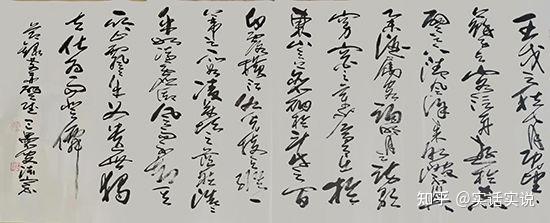 壬戌之秋七月既望
蘇子与客泛舟遊於赤
壁之下清風徐来水波不興
举酒属客誦明月之詩歌
窈窕之章少焉月出於
東山之上徘徊於斗牛之间
白露横江水光接天纵一
苇之所如凌萬顷之茫然浩浩
乎如馮虚御風而不知其
所止飘飘乎如遗世獨
立羽化而登僊
知乎 @实话实说